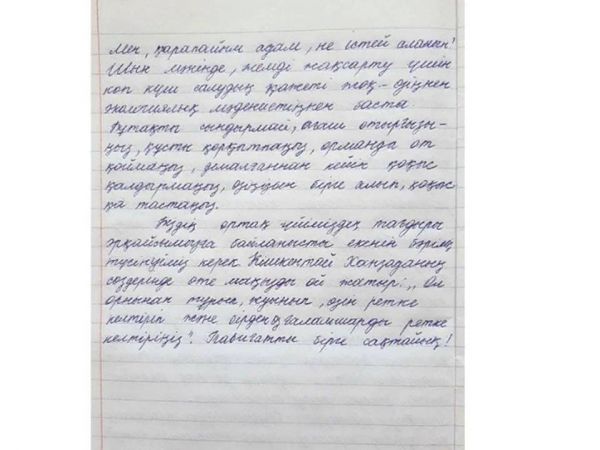 Мен, қарапайым адам, не істей аламын?
Шын мәнінде, жерді жақсарту үшін
көп күш салудың қажеті жоқ - өзіңнен
экологиялық мәдениетіңнен баста
Бұтақты сындырмай, ағаш отырғызы-
ңыз, құсты қорқытпаңыз, орманда от
қоймаңыз, демалғаннан кейін қоқыс
қалдырмаңыз, өзіңізбен бірге алып, қоқыс
қа тастаңыз.
Біздің ортақ үйіміздің тағдыры
әрқайсымызға байланысты екенін бәріміз
түсінуіміз керек Кішкентай Ханзаданың
сөздерінде өте маңызды ой жатыр: „Ол
орнынан тұрып, жуынып, өзін ретке
келтіріп және бірден ғаламшарды ретке
келтіріңіз". Табиғатты бірге сақтайық!